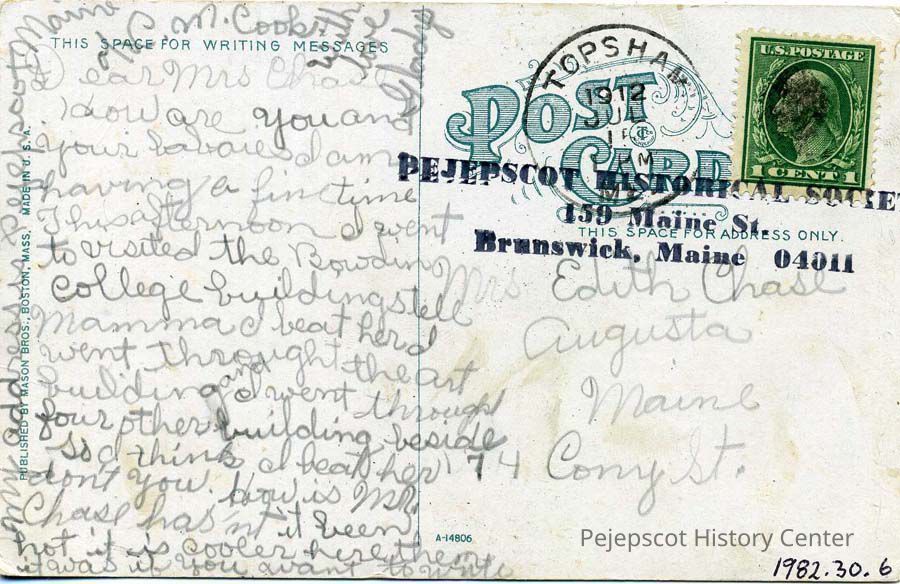 THIS SPACE FOR WRITING MESSAGES
Dear Mrs Chase
How are you and
your babaies I am
having a fine time
This afternoon I went
to visited the Bowdin
College buildings tell
Mamma I beat her I
went throught the art
building and I went through
four other building beside
so I think I beat her
don't you How is Mr
Chase has'nt it been
hot it is cooler here then
it was if you want to write
my address is Pejepscot Maine
M. Cook
with
love
Gladys
PUBLISHED BY MASON BROS., BOSTON, MASS. MADE IN U.S.A.
POST CARD
TOPSHAM
1912
JUL
PM
ME
U.S. POSTAGE
1 CENT 1
PEJEPSCOT HISTORICAL SOCIET
159 Maine St.
Brunswick, Maine 04011
THIS SPACE FOR ADDRESS ONLY.
Mrs Edith Chase
Augusta
Maine
74 Cony St.
A-14806
Pejepscot History Center
1982.30.6